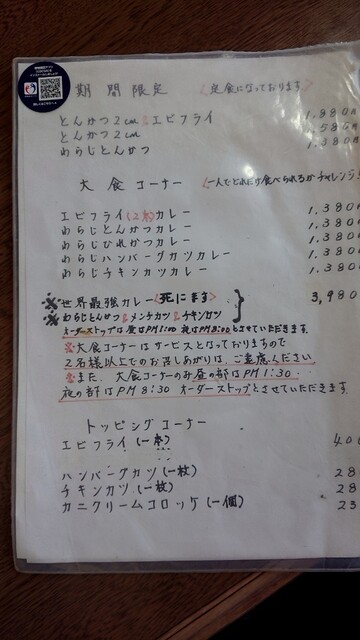 期間限定 〈定食になっております
とんかつ2cm&エビフライ 1,880
とんかつ2cm 1,580
わらじとんかつ 1,380
大食コーナー 〈一人でどれだけ食べられるかチャレンジ
エビフライ(2本)カレー 1,380
わらじとんかつカレー 1,380
わらじひれかつカレー 1,380
わらじハンバーグカツカレー 1,380
わらじチキンカツカレー 1,380
※世界最強カレー〈死にます〉 3,980
※わらじとんかつ&メンチカツ&チキンカツ
オーダーストップは昼はPM1:00 夜はPM8:00とさせていただきます。
※大食コーナーはサービスとなっておりますので
2名様以上でのお召しあがりは、ご遠慮ください
※また、大食コーナーのみ昼の部はPM1:30
夜の部はPM8:30 オーダーストップとさせていただきます
トッピングコーナー
エビフライ(一本) 400
ハンバーグカツ(一枚) 28
チキンカツ(一枚) 28
カニクリームコロッケ(一個) 23